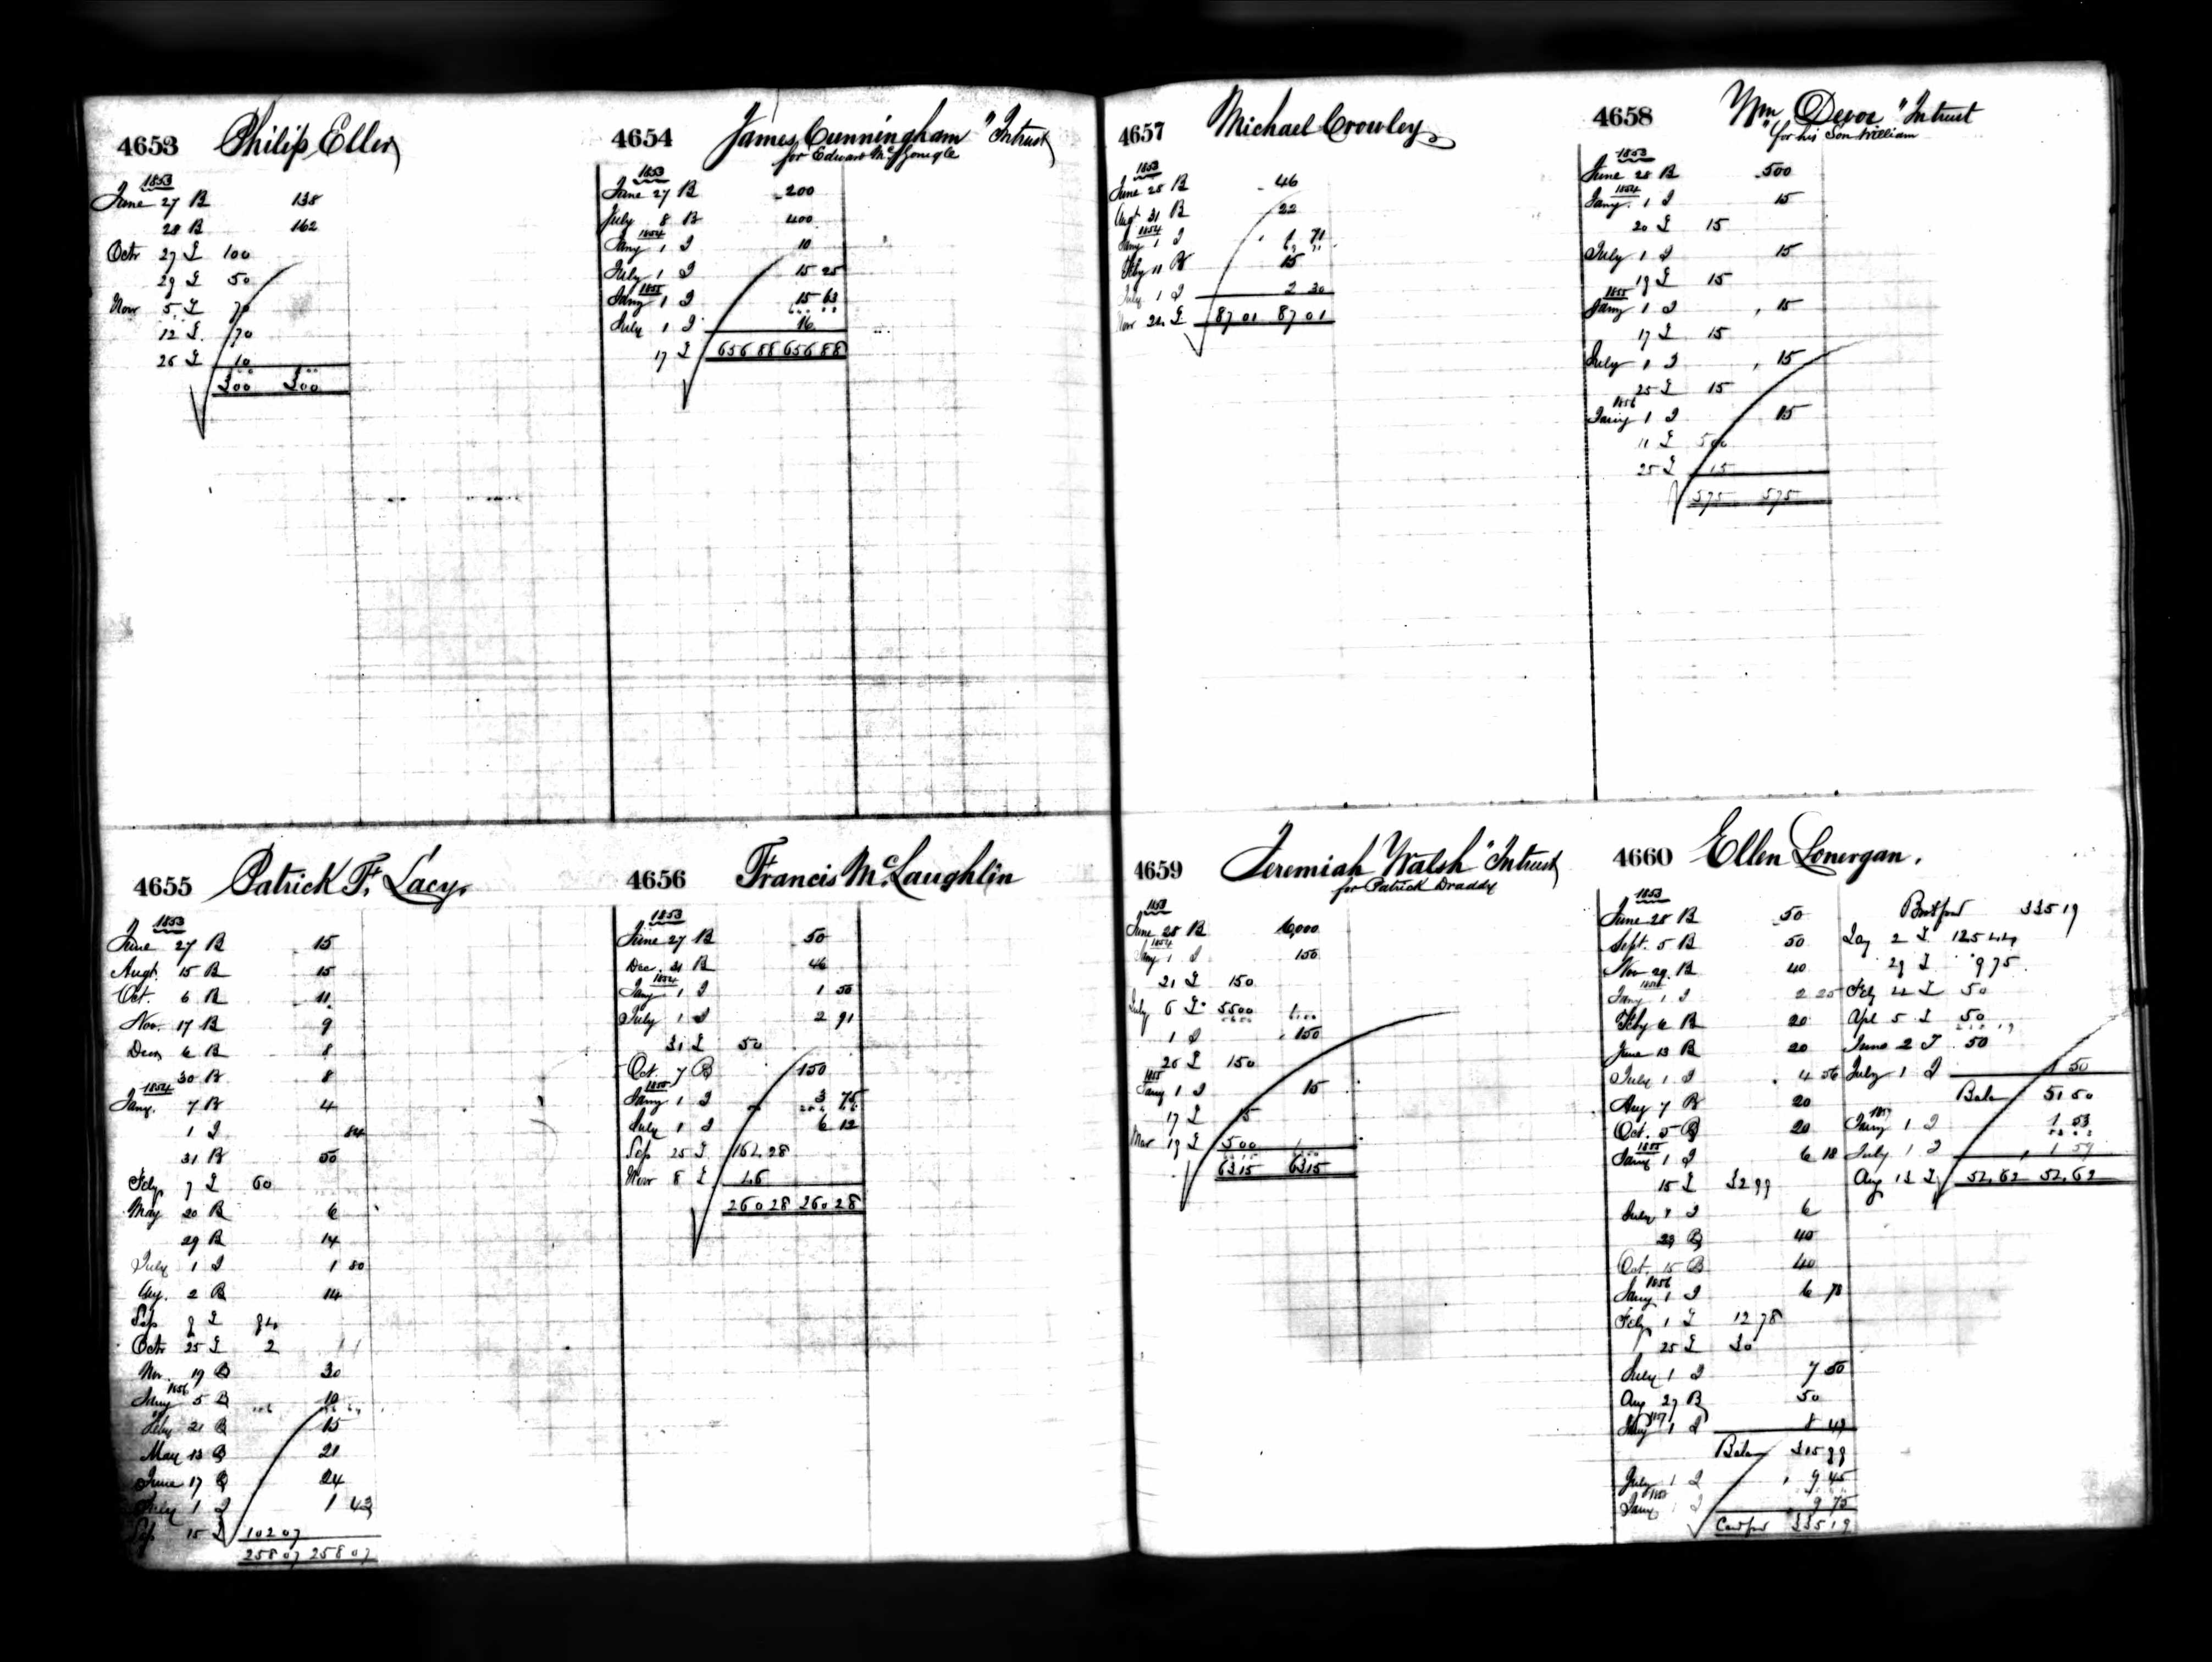 4653 Philip Eller
1853
June 27 B 138
28 B 162
Octr 27 L 100
29 L 50
Novr 5 L 70
12 L 70
26 L 10
300 300
4654 James Cunningham "Intrust
for Edward McGonigle
1853
June 27 B 200
July 8 B 400
1854
Jany 1 I 10
July 1 I 15 25
1855
Jany 1 I 15 63
July 1 I 16
17 L 656 88 656 88
4655 Patrick F. Lacy.
1853
June 27 B 15
Augt. 15 B 15
Oct. 6 B 11
Nov. 17 B 9
Decr 6 B 8
30 B 8
1854
Jany. 7 B 4
1 I 84
31 B 50
Feby 7 L 60
May 20 B 6
29 B 14
July 1 I 1 80
Aug. 2 B 14
Sep 9 L 94
Octr 25 L 2
Nov. 19 B 30
1856
Jany 5 B 10
Feby 21 B 15
May 13 B 21
June 17 B 24
July 1 I 1 43
Sep 15 L 102 07
258 07 258 07
4656 Francis McLaughlin
1853
June 27 B 50
Dec. 31 B 46
1854
Jany 1 I 1 50
July 1 I 2 91
31 L 50
Oct. 7 B 150
1855
Jany 1 I 3 75
July 1 I 6 12
Sep 25 L 164 28
Novr 8 L 46
260 28 260 28
4657 Michael Crowley
1853
June 28 B 46
Augt 31 B 22
1854
Jany 1 I 1 71
Feby 11 B 15
July 1 I 2 30
Novr 24 L 87 01 87 01
4658 Wm Devoe "Intrust
"for his Son William
1853
June 28 B 500
1854
Jany. 1 I 15
20 L 15
July 1 I 15
19 L 15
1855
Jany 1 I 15
17 L 15
July 1 I 15
25 L 15
1856
Jany 1 I 15
11 L 500
25 L 15
575 575
4659 Jeremiah Walsh "Intrust
for Patrick Draddy
1853
June 28 B 6,000
1854
Jany 1 I 150
21 L 150
July 6 L 5500
1 I 150
26 L 150
1855
Jany 1 I 15
17 L 15
Mar 19 L 500
6315 6315
4660 Ellen Lonergan.
1853
June 28 B 50
Sept. 5 B 50
Nov 29. B 40
1854
Jany 1 I 2 25
Feby 6 B 20
June 13 B 20
July 1 I 4 56
Aug 7 B 20
Oct. 5 B 20
1855
Jany 1 I 6 18
15 L 32 99
July 1 I 6
23 B 40
Oct. 15 B 40
1856
Jany 1 I 6 78
Feby 1 L 12 78
25 L 30
July 1 I 7 50
Aug 27 B 50
1857
Jany 1 I 8 49
Balan 315 99
July 1 I 9 45
1858
Jany 1 I 9 75
Card for 335 19
Brot ford 335 19
Jay 2 L 125 44
29 L 9 75
Feby 22 L 50
Apl 5 L 50
June 2 L 50
July 1 I 1 50
Balan 51 50
1859
Jany 1 I 1 53
July 1 I 1 59
Aug 13 L 52,62 52,62